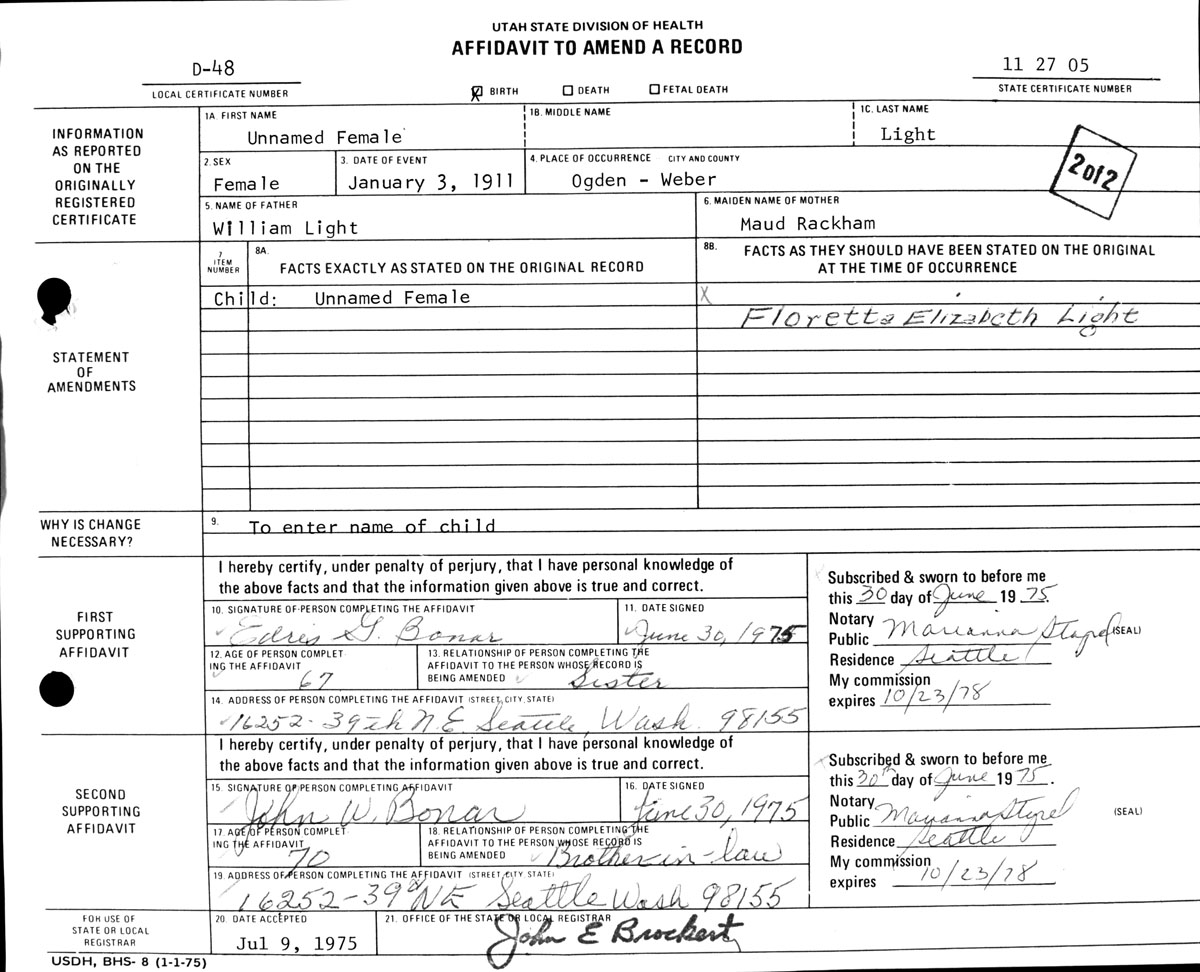 UTAH STATE DIVISION OF HEALTH
AFFIDAVIT TO AMEND A RECORD
D-48
LOCAL CERTIFICATE NUMBER
BIRTH DEATH FETAL DEATH
11 27 05
STATE CERTIFICATE NUMBER
INFORMATION
AS REPORTED
ON THE
ORIGINALLY
REGISTERED
CERTIFICATE
1A. FIRST NAME
Unnamed Female
1B. MIDDLE NAME
1C. LAST NAME
Light
2 of 2
2. SEX
Female
3. DATE OF EVENT
January 3, 1911
4. PLACE OF OCCURRENCE CITY AND COUNTY
Ogden - Weber
5. NAME OF FATHER
William Light
6. MAIDEN NAME OF MOTHER
Maud Rackham
STATEMENT
OF
AMENDMENTS
7
ITEM
NUMBER
8A.
FACTS EXACTLY AS STATED ON THE ORIGINAL RECORD
8B. FACTS AS THEY SHOULD HAVE BEEN STATED ON THE ORIGINAL
AT THE TIME OF OCCURRENCE
Child: Unnamed Female
X
Floretta Elizabeth Light
WHY IS CHANGE
NECESSARY?
9. To enter name of child
FIRST
SUPPORTING
AFFIDAVIT
I hereby certify, under penalty of perjury, that I have personal knowledge of
the above facts and that the information given above is true and correct.
10. SIGNATURE OF PERSON COMPLETING THE AFFIDAVIT
Edris G. Bonar
11. DATE SIGNED
June 30, 1975
12. AGE OF PERSON COMPLET
ING THE AFFIDAVIT
67
13. RELATIONSHIP OF PERSON COMPLETING THE
AFFIDAVIT TO THE PERSON WHOSE RECORD IS
BEING AMENDED
Sister
14. ADDRESS OF PERSON COMPLETING THE AFFIDAVIT (STREET, CITY, STATE)
16252-39th N.E. Seattle, Wash. 98155
Subscribed & sworn to before me
this 30 day of June 1975.
Notary
Public Marianna Stapel (SEAL)
Residence Seattle
My commission
expires 10/23/78
SECOND
SUPPORTING
AFFIDAVIT
I hereby certify, under penalty of perjury, that I have personal knowledge of
the above facts and that the information given above is true and correct.
15. SIGNATURE OF PERSON COMPLETING AFFIDAVIT
John W. Bonar
16. DATE SIGNED
June 30, 1975
17. AGE OF PERSON COMPLET
ING THE AFFIDAVIT
70
18. RELATIONSHIP OF PERSON COMPLETING THE
AFFIDAVIT TO THE PERSON WHOSE RECORD IS
BEING AMENDED
Brother-in-law
19. ADDRESS OF PERSON COMPLETING THE AFFIDAVIT (STREET, CITY, STATE)
16252-39 NE Seattle Wash 98155
Subscribed & sworn to before me
this 30th day of June 1975.
Notary
Public Marianna Stapel (SEAL)
Residence Seattle
My commission
expires 10/23/78
FOR USE OF
STATE OR LOCAL
REGISTRAR
20. DATE ACCEPTED
Jul 9, 1975
21. OFFICE OF THE STATE OR LOCAL REGISTRAR
John E Brockert
USDH, BHS- 8 (1-1-75)